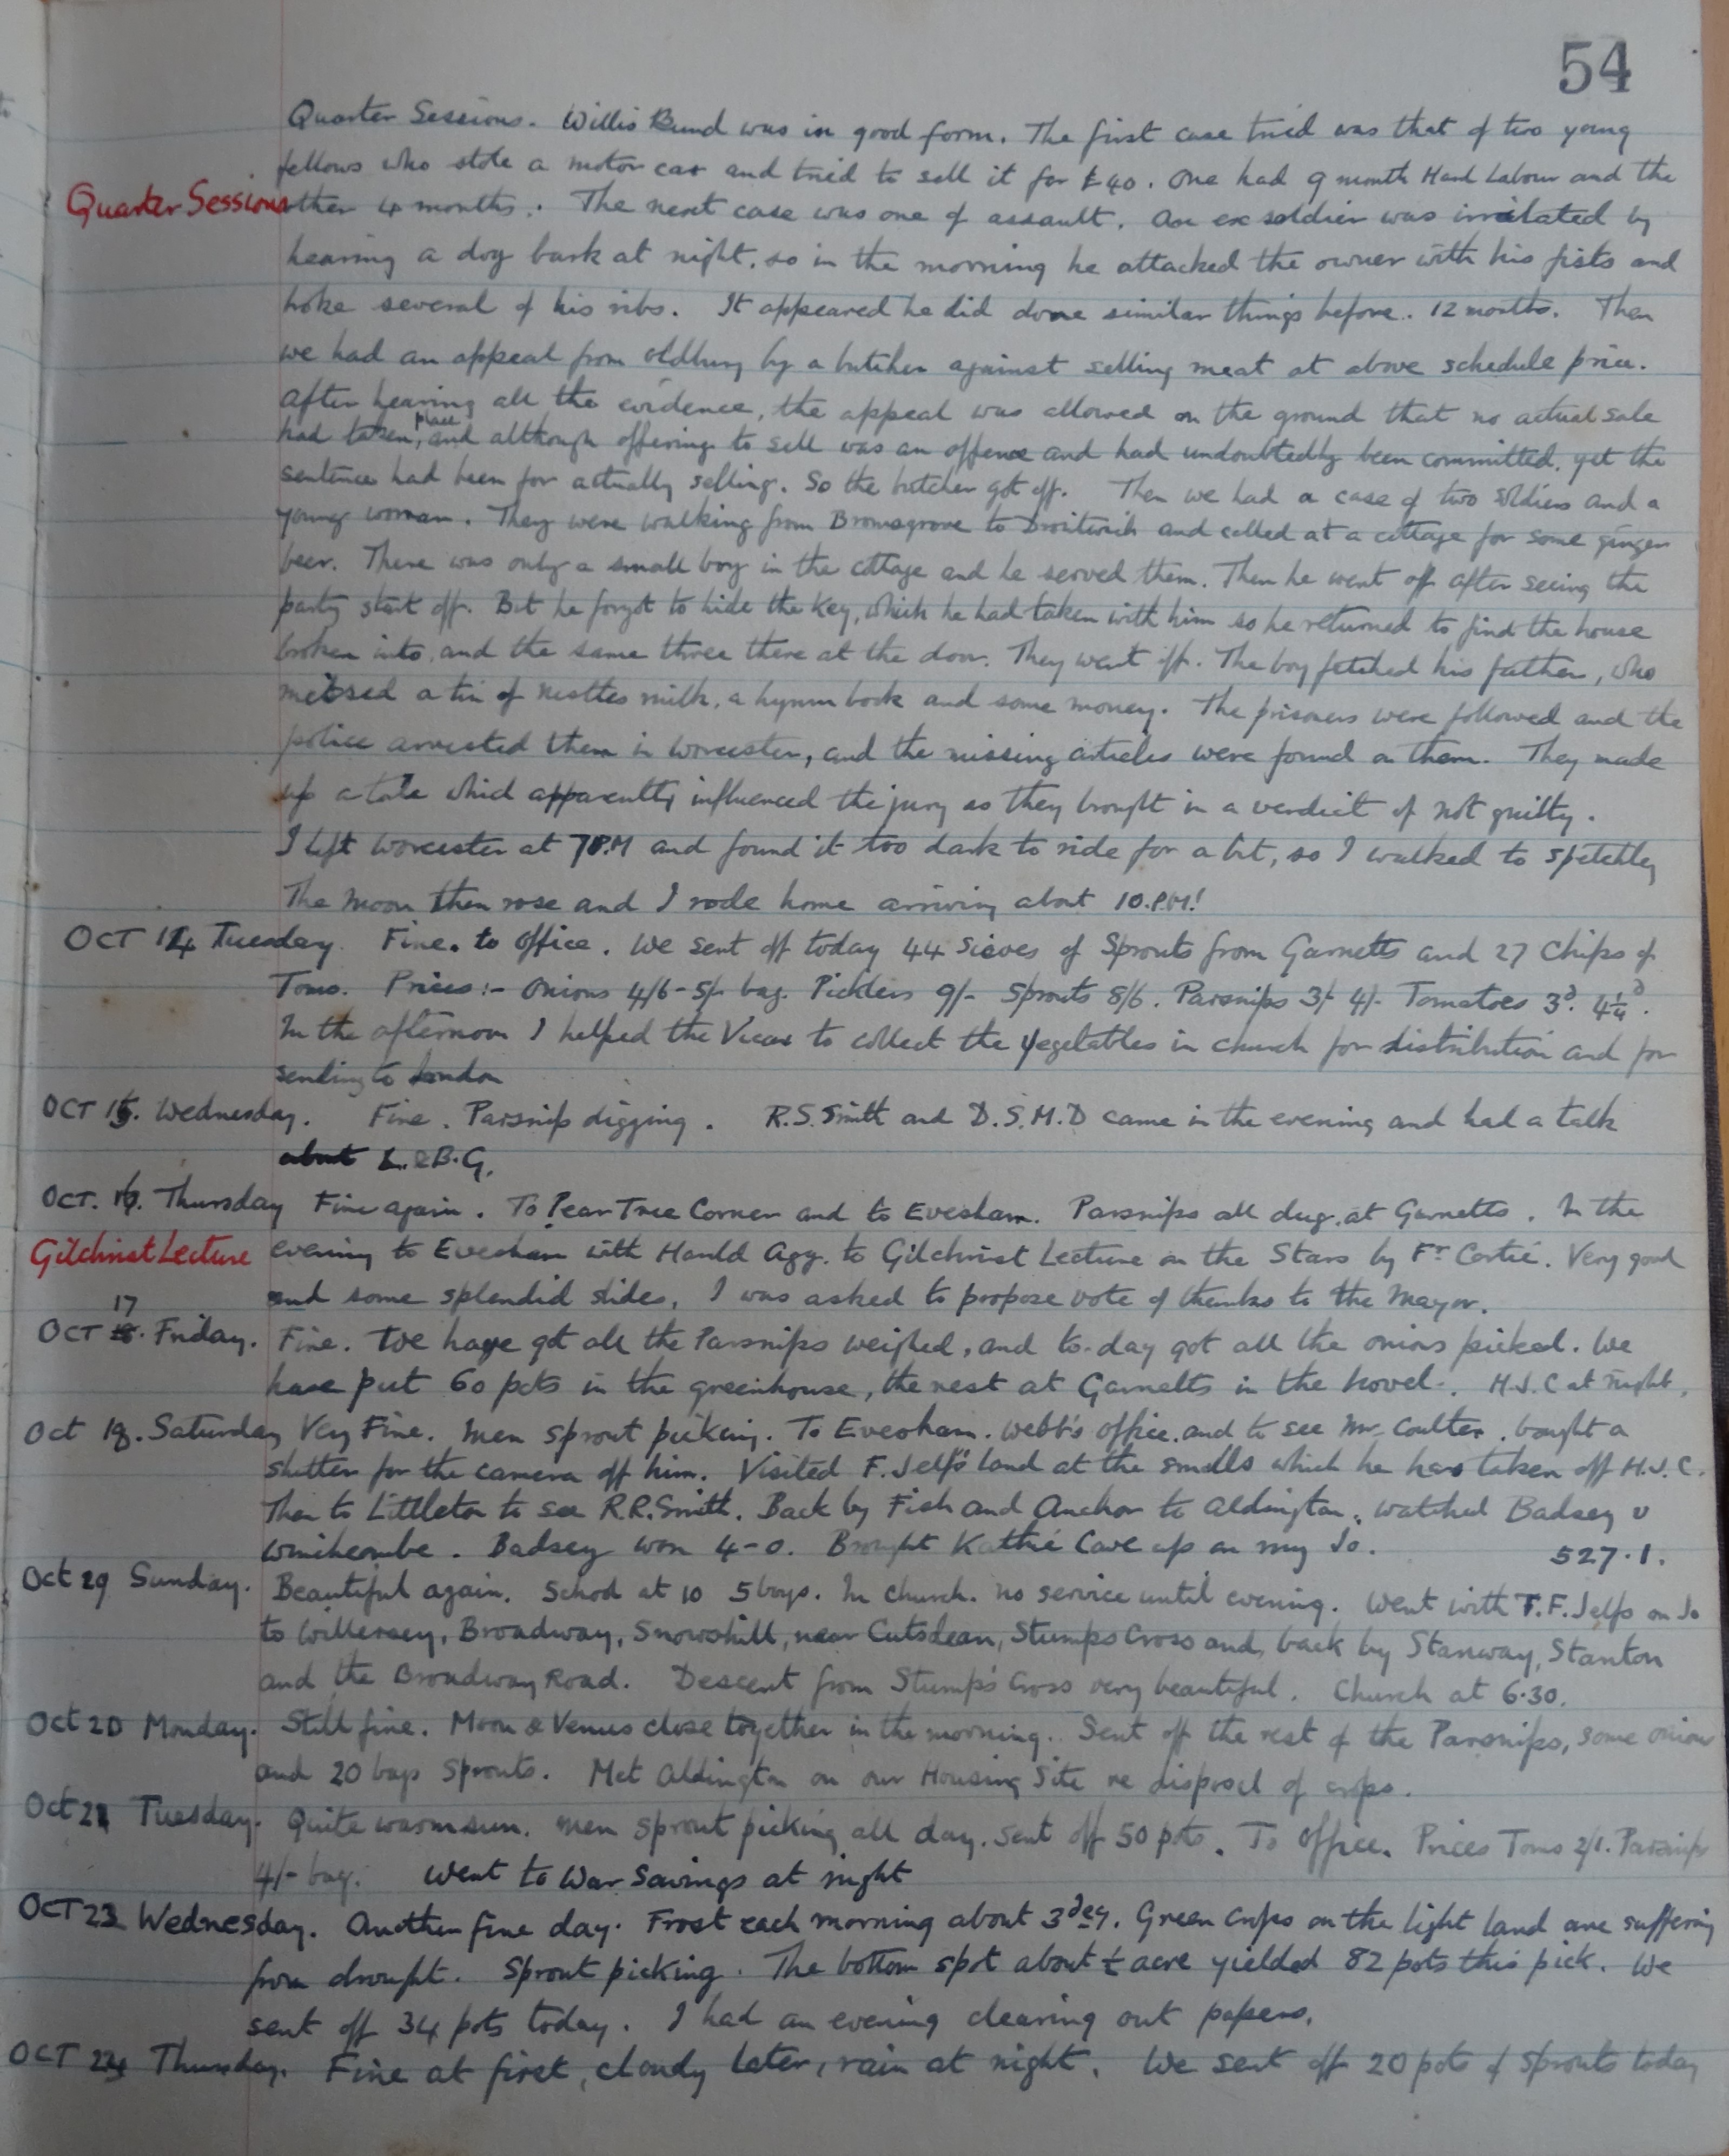 54
Quarter Sessions. Willis Bund was in good form. The first case tried was that of two young
fellows who stole a motor car and tried to sell it for £40. One had 9 month Hard Labour and the
Quarter Sessions
other 4 months. The next case was one of assault. An ex soldier was irritated by
hearing a dog bark at night, so in the morning he attacked the owner with his fists and
broke several of his ribs. It appeared he did done similar things before. 12 months. Then
we had an appeal from Oldbury by a butcher against selling meat at above schedule price.
After hearing all the evidence, the appeal was allowed on the ground that no actual sale
had taken place, and although offering to sell was an offence and had undoubtedly been committed, yet the
sentence had been for actually selling. So the butcher got off. Then we had a case of two soldiers and a
young woman. They were walking from Bromsgrove to Droitwich and called at a cottage for some ginger
beer. There was only a small boy in the cottage and he served them. Then he went off after seeing the
party start off. But he forgot to hide the key, which he had taken with him so he returned to find the house
broken into, and the same three there at the door. They went off. The boy fetched his father, who
missed a tin of Nestles milk, a hymn book and some money. The prisoners were followed and the
police arrested them in Worcester, and the missing articles were found on them. They made
up a tale which apparently influenced the jury as they brought in a verdict of not guilty.
I left Worcester at 7 P.M and found it too dark to ride for a bit, so I walked to Spetchley
The moon then rose and I rode home arriving about 10.P.M!
OCT 14 Tuesday. Fine. to Office. We sent off today 44 sieves of Sprouts from Garnetts and 27 Chips of
Toms. Prices:- Onions 4/6-5/- bag. Picklers 9/- Sprouts 8/6. Parsnips 3/- 4/- Tomatoes 3d. 4¼d.
In the afternoon I helped the Vicar to collect the vegetables in church for distribution and for
sending to London
OCT 15. Wednesday. Fine. Parsnip digging. R.S. Smith and D.S.M.D came in the evening and had a talk
about L. & B.G.
OCT. 16. Thursday Fine again. To Pear Tree Corner and to Evesham. Parsnips all dug, at Garnetts. In the
Gilchrist Lecture
evening to Evesham with Harold Agg. to Gilchrist Lecture on the Stars by Fr Cortie. Very good
and some splendid slides, I was asked to propose vote of thanks to the Mayor.
OCT 17. Friday. Fine. We have got all the Parsnips weighed, and to-day got all the onions picked. We
have put 60 pots in the greenhouse, the rest at Garnetts in the hovel. H.J.C at night.
Oct 18. Saturday Very Fine. Men sprout picking. To Evesham. Webb's office. and to see Mr Coulter. bought a
shutter for the camera off him. Visited F. Jelf's land at the smalls which he has taken off H.J.C.
Then to Littleton to see R.R. Smith. Back by Fish and Anchor to Aldington. watched Badsey v
Winchcombe. Badsey won 4-0. Brought Kathie Cave up on my Jo. 527.1.
Oct 19 Sunday. Beautiful again. School at 10 5 boys. In church. No service until evening. Went with T.F. Jelfs on Jo
to Willersey, Broadway, Snowshill, near Cutsdean, Stumps Cross and back by Stanway, Stanton
and the Broadway Road. Descent from Stumps Cross very beautiful. Church at 6.30.
Oct 20 Monday. Still fine. Moon & Venus close together in the morning. Sent off the rest of the Parsnips, some onions
and 20 bags Sprouts. Met Aldington on our Housing Site re disposal of crops.
Oct 21 Tuesday. Quite warm sun. Men sprout picking all day. Sent off 50 pots. To Office. Prices Toms 2/1. Parsnips
4/- bag. Went to War Savings at night
OCT 22 Wednesday. Another fine day. Frost each morning about 3 deg. Green crops on the light land are suffering
from drought. Sprout picking. The bottom spot about ½ acre yielded 82 pots this pick. We
sent off 34 pots today. I had an evening clearing out papers.
OCT 23 Thursday. Fine at first, cloudy later, rain at night. We sent off 20 pots of Sprouts today